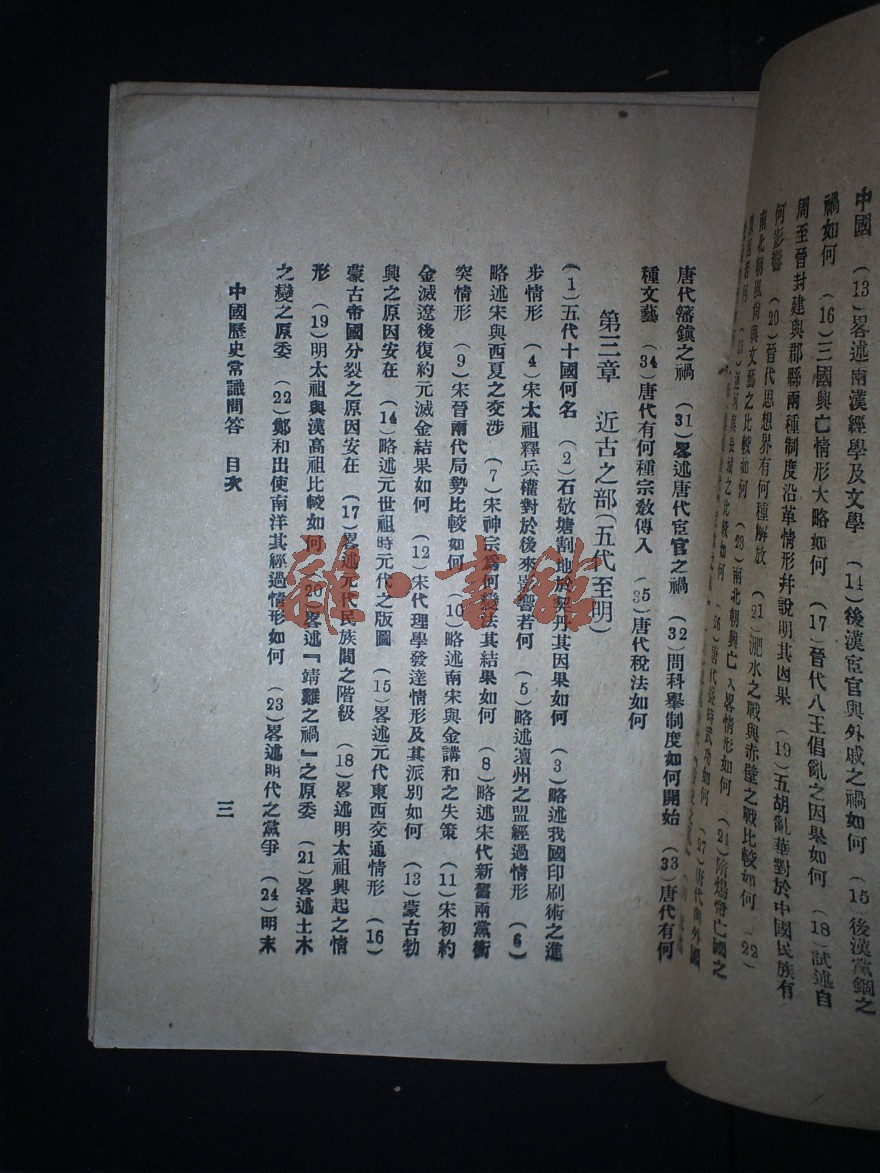 中國 (13)畧述兩漢經學及文學 (14)後漢宦官與外戚之禍如何 (15)後漢黨錮之
禍如何 (16)三國興亡情形大略如何 (17)晉代八王倡亂之因果如何 (18)試述自
周至晉封建與郡縣兩種制度沿革情形幷說明其因果 (19)五胡亂華對於中國民族有
何影響 (20)晉代思想界有何種解放 (21)淝水之戰與赤壁之戰比較如何 (22
南北朝風尙與文藝之比較如何 (23)南北朝興亡大畧情形如何 (24)隋煬帝亡國之
唐代藩鎭之禍 (31)畧述唐代宦官之禍 (32)問科舉制度如何開始 (33)唐代有何
種文藝 (34)唐代有何種宗敎傳入 (35)唐代稅法如何
第三章 近古之部(五代至明)
(1)五代十國何名 (2)石敬塘割地於契丹其因果如何 (3)略述我國印刷術之進
步情形 (4)宋太祖釋兵權對於後來影響若何 (5)略述壇州之盟經過情形 (6)
略述宋與西夏之交涉 (7)宋神宗爲何變法其結果如何 (8)略述宋代新舊兩黨衝
突情形 (9)宋晉兩代局勢比較如何 (10)略述南宋與金講和之失策 (11)宋初約
金滅遼後復約元滅金結果如何 (12)宋代理學發達情形及其派別如何 (13)蒙古勃
興之原因安在 (14)略述元世祖時元代之版圖 (15)畧述元代東西交通情形 (16)
蒙古帝國分裂之原因安在 (17)畧述元代民族間之階級 (18)畧述明太祖興起之情
形 (19)明太祖與漢高祖比較如何 (20)畧述『靖難之禍』之原委 (21)畧述土木
之變之原委 (22)鄭和出使南洋其經過情形如何 (23)畧述明代之黨爭 (24)明末
中國歷史常識問答 目次
三
雜·書館